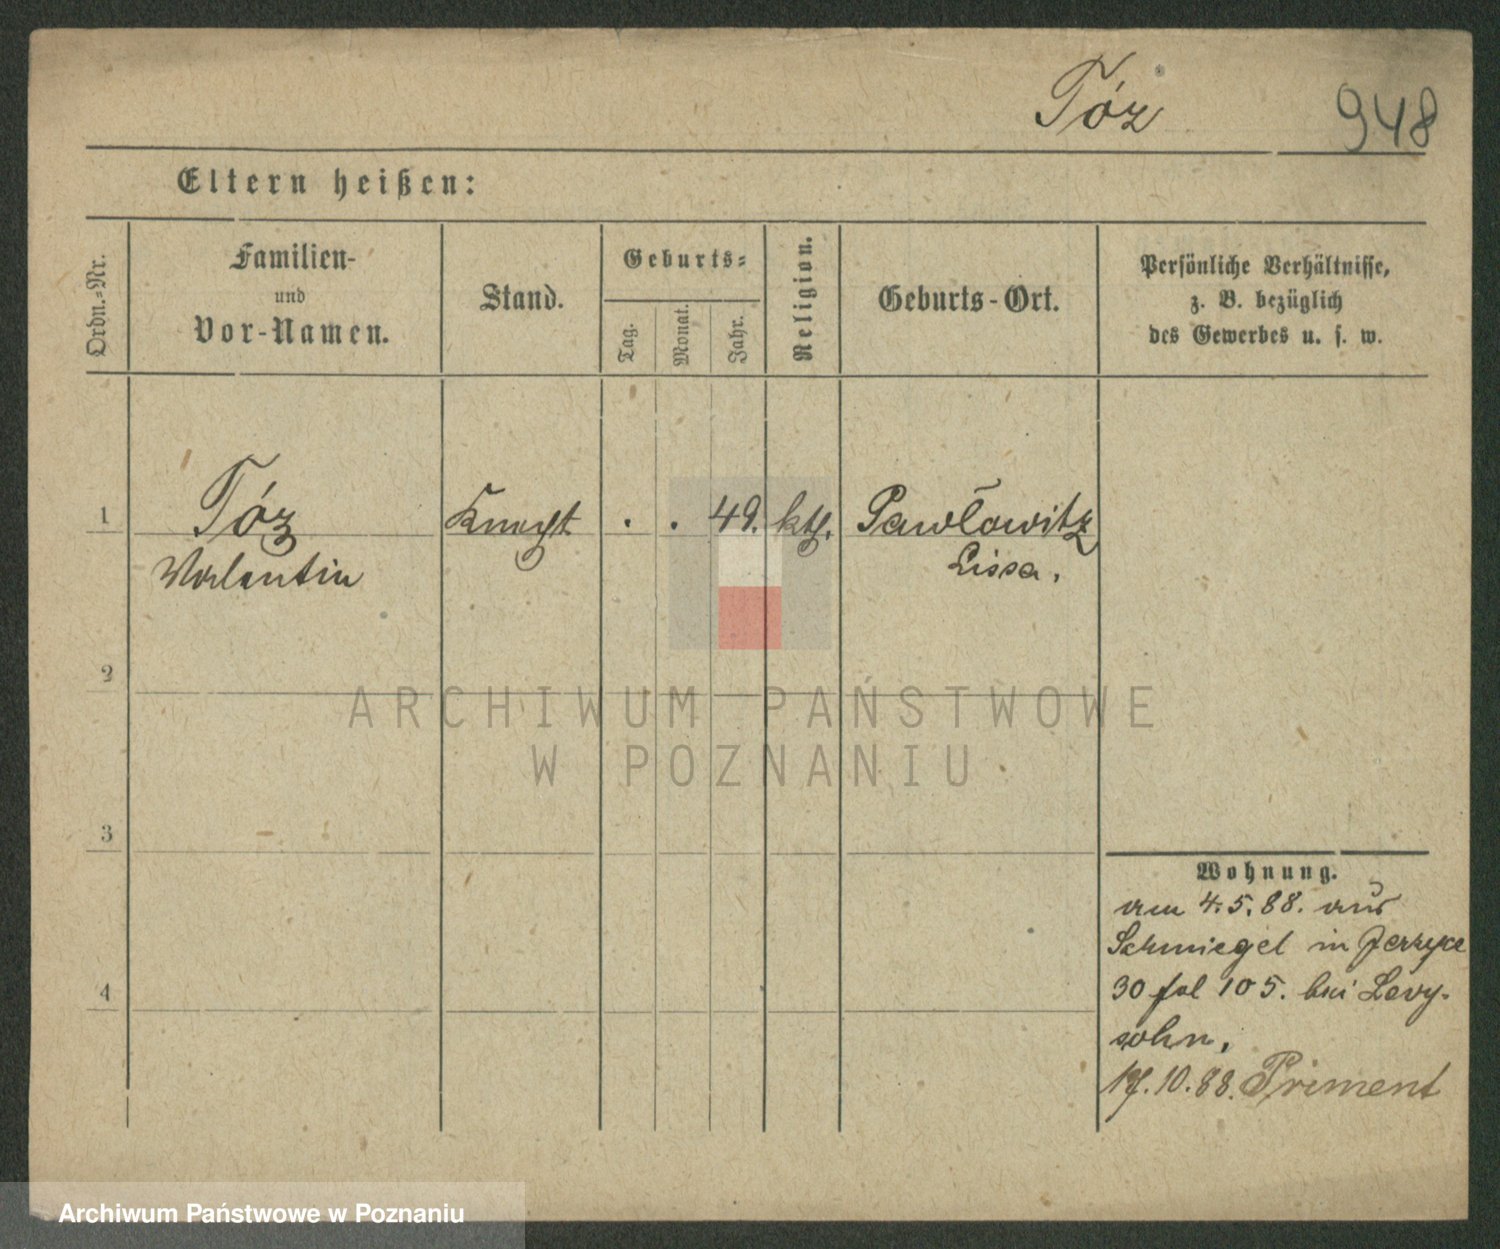 Tóz
948
Eltern heißen:
Ordn.-Nr.
Familien-
und
Vor-Namen.
Stand.
Geburts-
Tag.
Monat.
Jahr.
Religion.
Geburts-Ort.
Persönliche Verhältnisse,
z. B. bezüglich
des Gewerbes u. s. w.
1
Tóz
Valentin
Knecht
. . 49. kth.
Pawlowitz
Lissa.
2
ARCHIWUM PAŃSTWOWE
W POZNANIU
3
4
Wohnung.
am 4.5.88. aus
Schmiegel in Jerzyce
30 fol 105. bei Levy-
sohn,
17.10.88. Priment
Archiwum Państwowe w Poznaniu